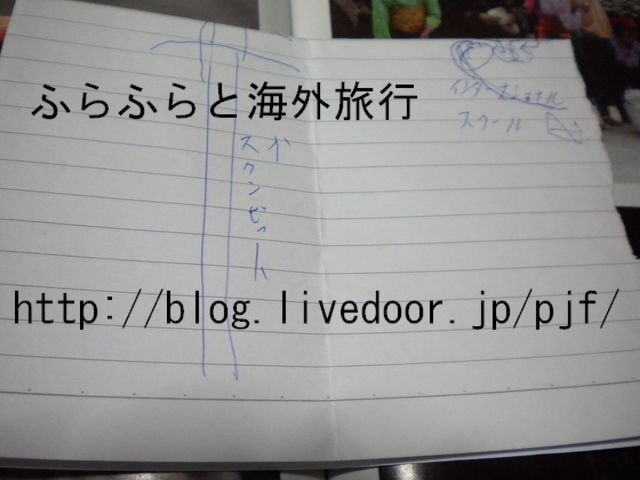 ふらふらと海外旅行
インターナショナル
スクール
スクンビット
http://blog.livedoor.jp/pjf/